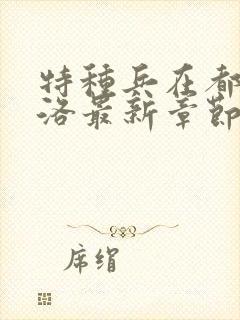 特種兵在都
洛最新章節
席绢